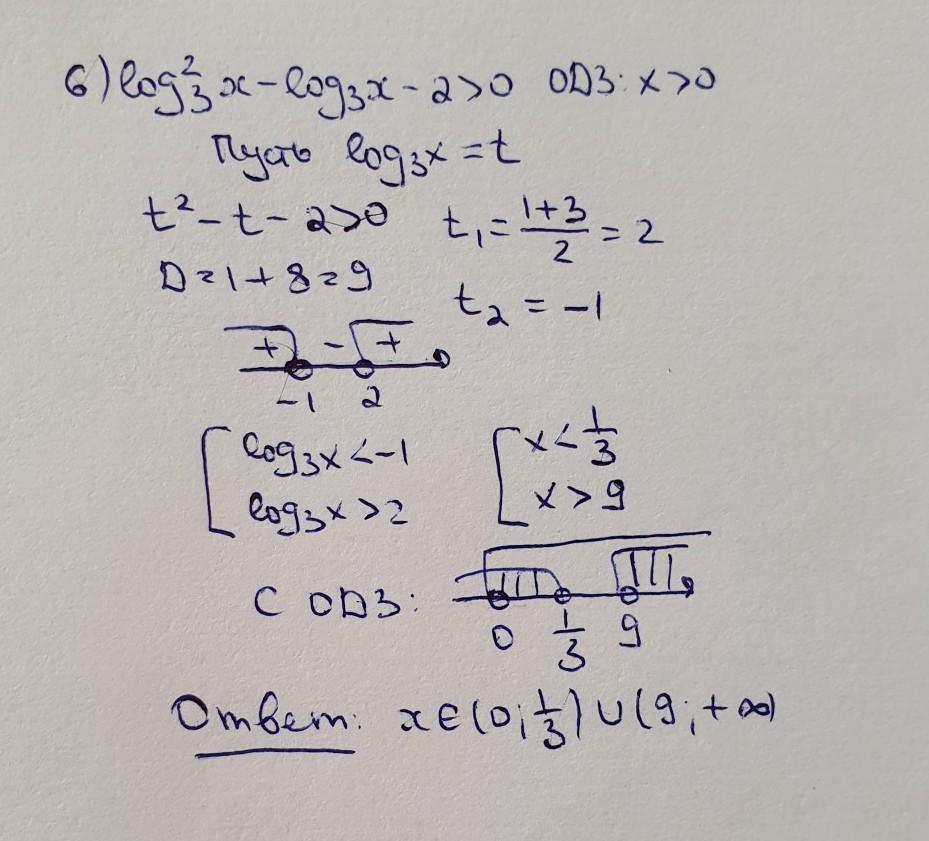 6) log₃²x - log₃x - 2 > 0 ОДЗ: x > 0
Пусть log₃x = t
t² - t - 2 > 0 t₁ = (1+3)/2 = 2
D = 1 + 8 = 9 t₂ = -1
+ - +
-1 2
[ log₃x < -1 [ x < 1/3
log₃x > 2 x > 9
С ОДЗ:
0 1/3 9
Ответ: x ∈ (0; 1/3) ∪ (9; +∞)